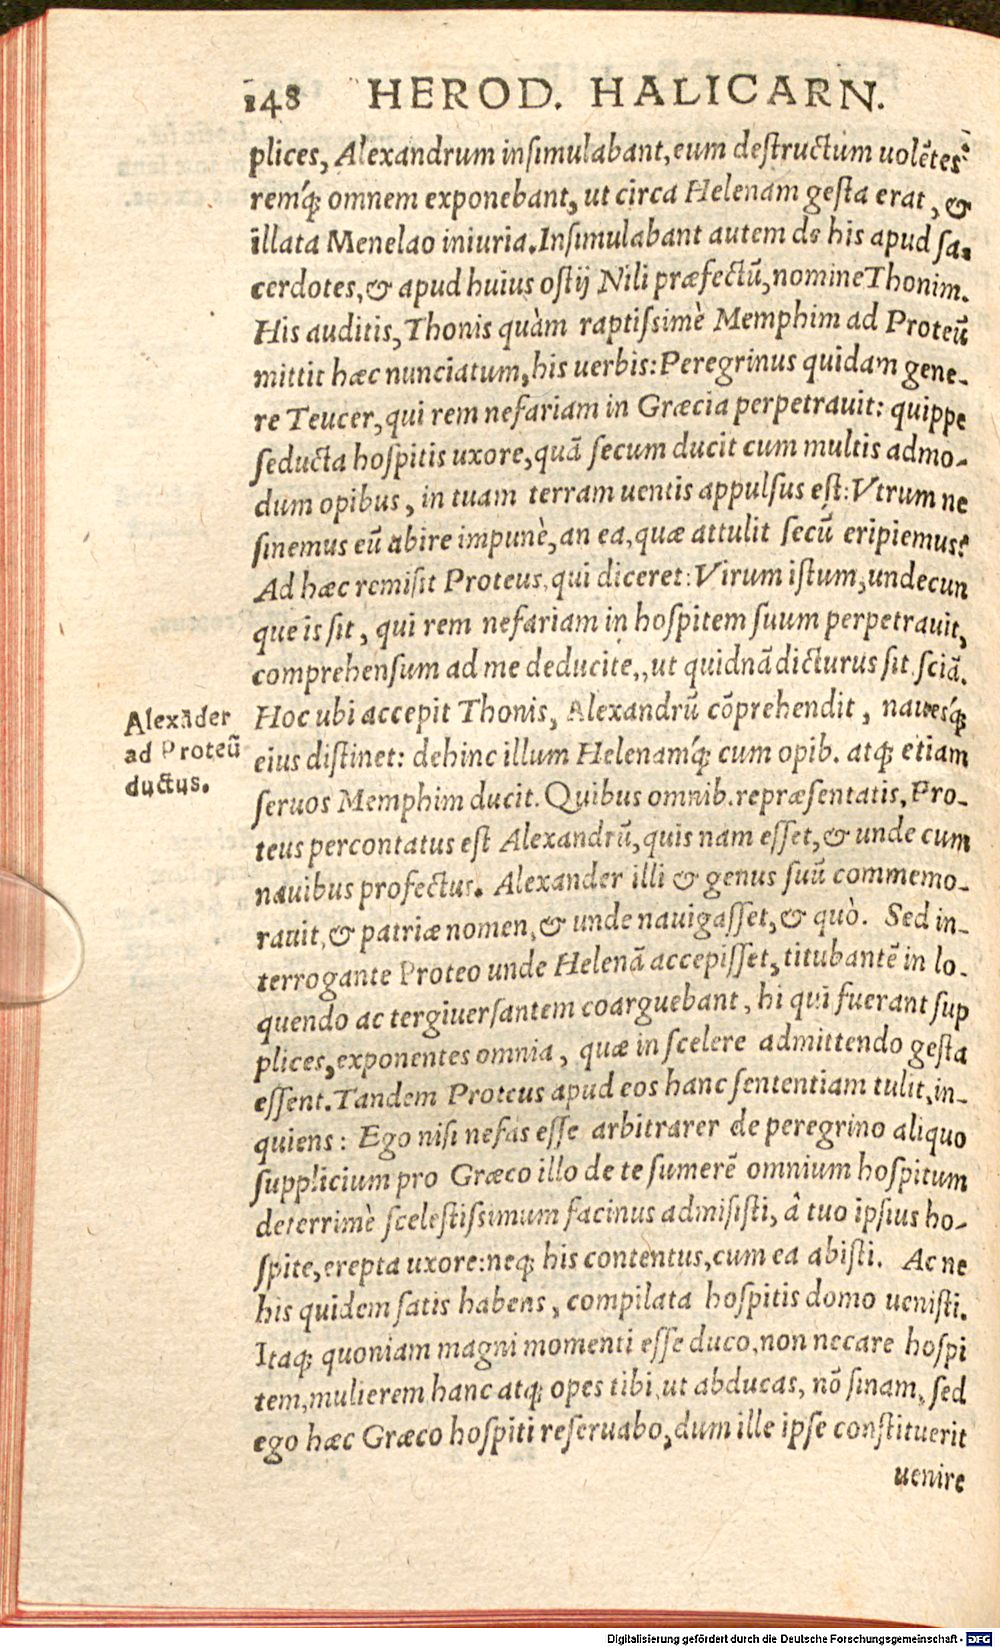 148 HEROD. HALICARN.
plices, Alexandrum inſimulabant, eum deſtructum uolẽtes:
remq́; omnem exponebant, ut circa Helenam geſta erat, &
illata Menelao iniuria. Inſimulabant autem de his apud ſa-
cerdotes, & apud huius oſtij Nili præfectũ, nomine Thonim.
His auditis, Thonis quàm raptiſsimè Memphim ad Proteũ
mittit hæc nunciatum, his uerbis: Peregrinus quidam gene-
re Teucer, qui rem nefariam in Græcia perpetrauit: quippe
ſeducta hoſpitis uxore, quã ſecum ducit cum multis admo-
dum opibus, in tuam terram uentis appulſus eſt: Vtrum ne
ſinemus eũ abire impunè, an ea, quæ attulit ſecũ eripiemus?
Ad hæc remiſit Proteus, qui diceret: Virum iſtum, undecun
que is ſit, qui rem nefariam in hoſpitem ſuum perpetrauit,
comprehenſum ad me deducite,, ut quidnã dicturus ſit ſciã.
Alexãder
ad Proteũ
ductus.
Hoc ubi accepit Thonis, Alexandrũ cõprehendit, nauesq́;
eius diſtinet: dehinc illum Helenamq́; cum opib. atq; etiam
ſeruos Memphim ducit. Quibus omnib. repræſentatis, Pro-
teus percontatus eſt Alexandrũ, quis nam eſſet, & unde cum
nauibus profectus. Alexander illi & genus ſuũ commemo-
rauit, & patriæ nomen, & unde nauigaſſet, & quò. Sed in-
terrogante Proteo unde Helenã accepiſſet, titubantẽ in lo-
quendo ac tergiuerſantem coarguebant, hi qui fuerant ſup
plices, exponentes omnia, quæ in ſcelere admittendo geſta
eſſent. Tandem Proteus apud eos hanc ſententiam tulit, in-
quiens: Ego niſi nefas eſſe arbitrarer de peregrino aliquo
ſupplicium pro Græco illo de te ſumerẽ omnium hoſpitum
deterrimè ſceleſtiſsimum facinus admiſiſti, â tuo ipſius ho-
ſpite, erepta uxore: neq; his contentus, cum ea abiſti. Ac ne
his quidem ſatis habens, compilata hoſpitis domo ueniſti.
Itaq; quoniam magni momenti eſſe duco, non necare hoſpi
tem, mulierem hanc atq; opes tibi, ut abducas, nõ ſinam, ſed
ego hæc Græco hoſpiti reſeruabo, dum ille ipſe conſtituerit
uenire
Digitalisierung gefördert durch die Deutsche Forschungsgemeinschaft - DFG